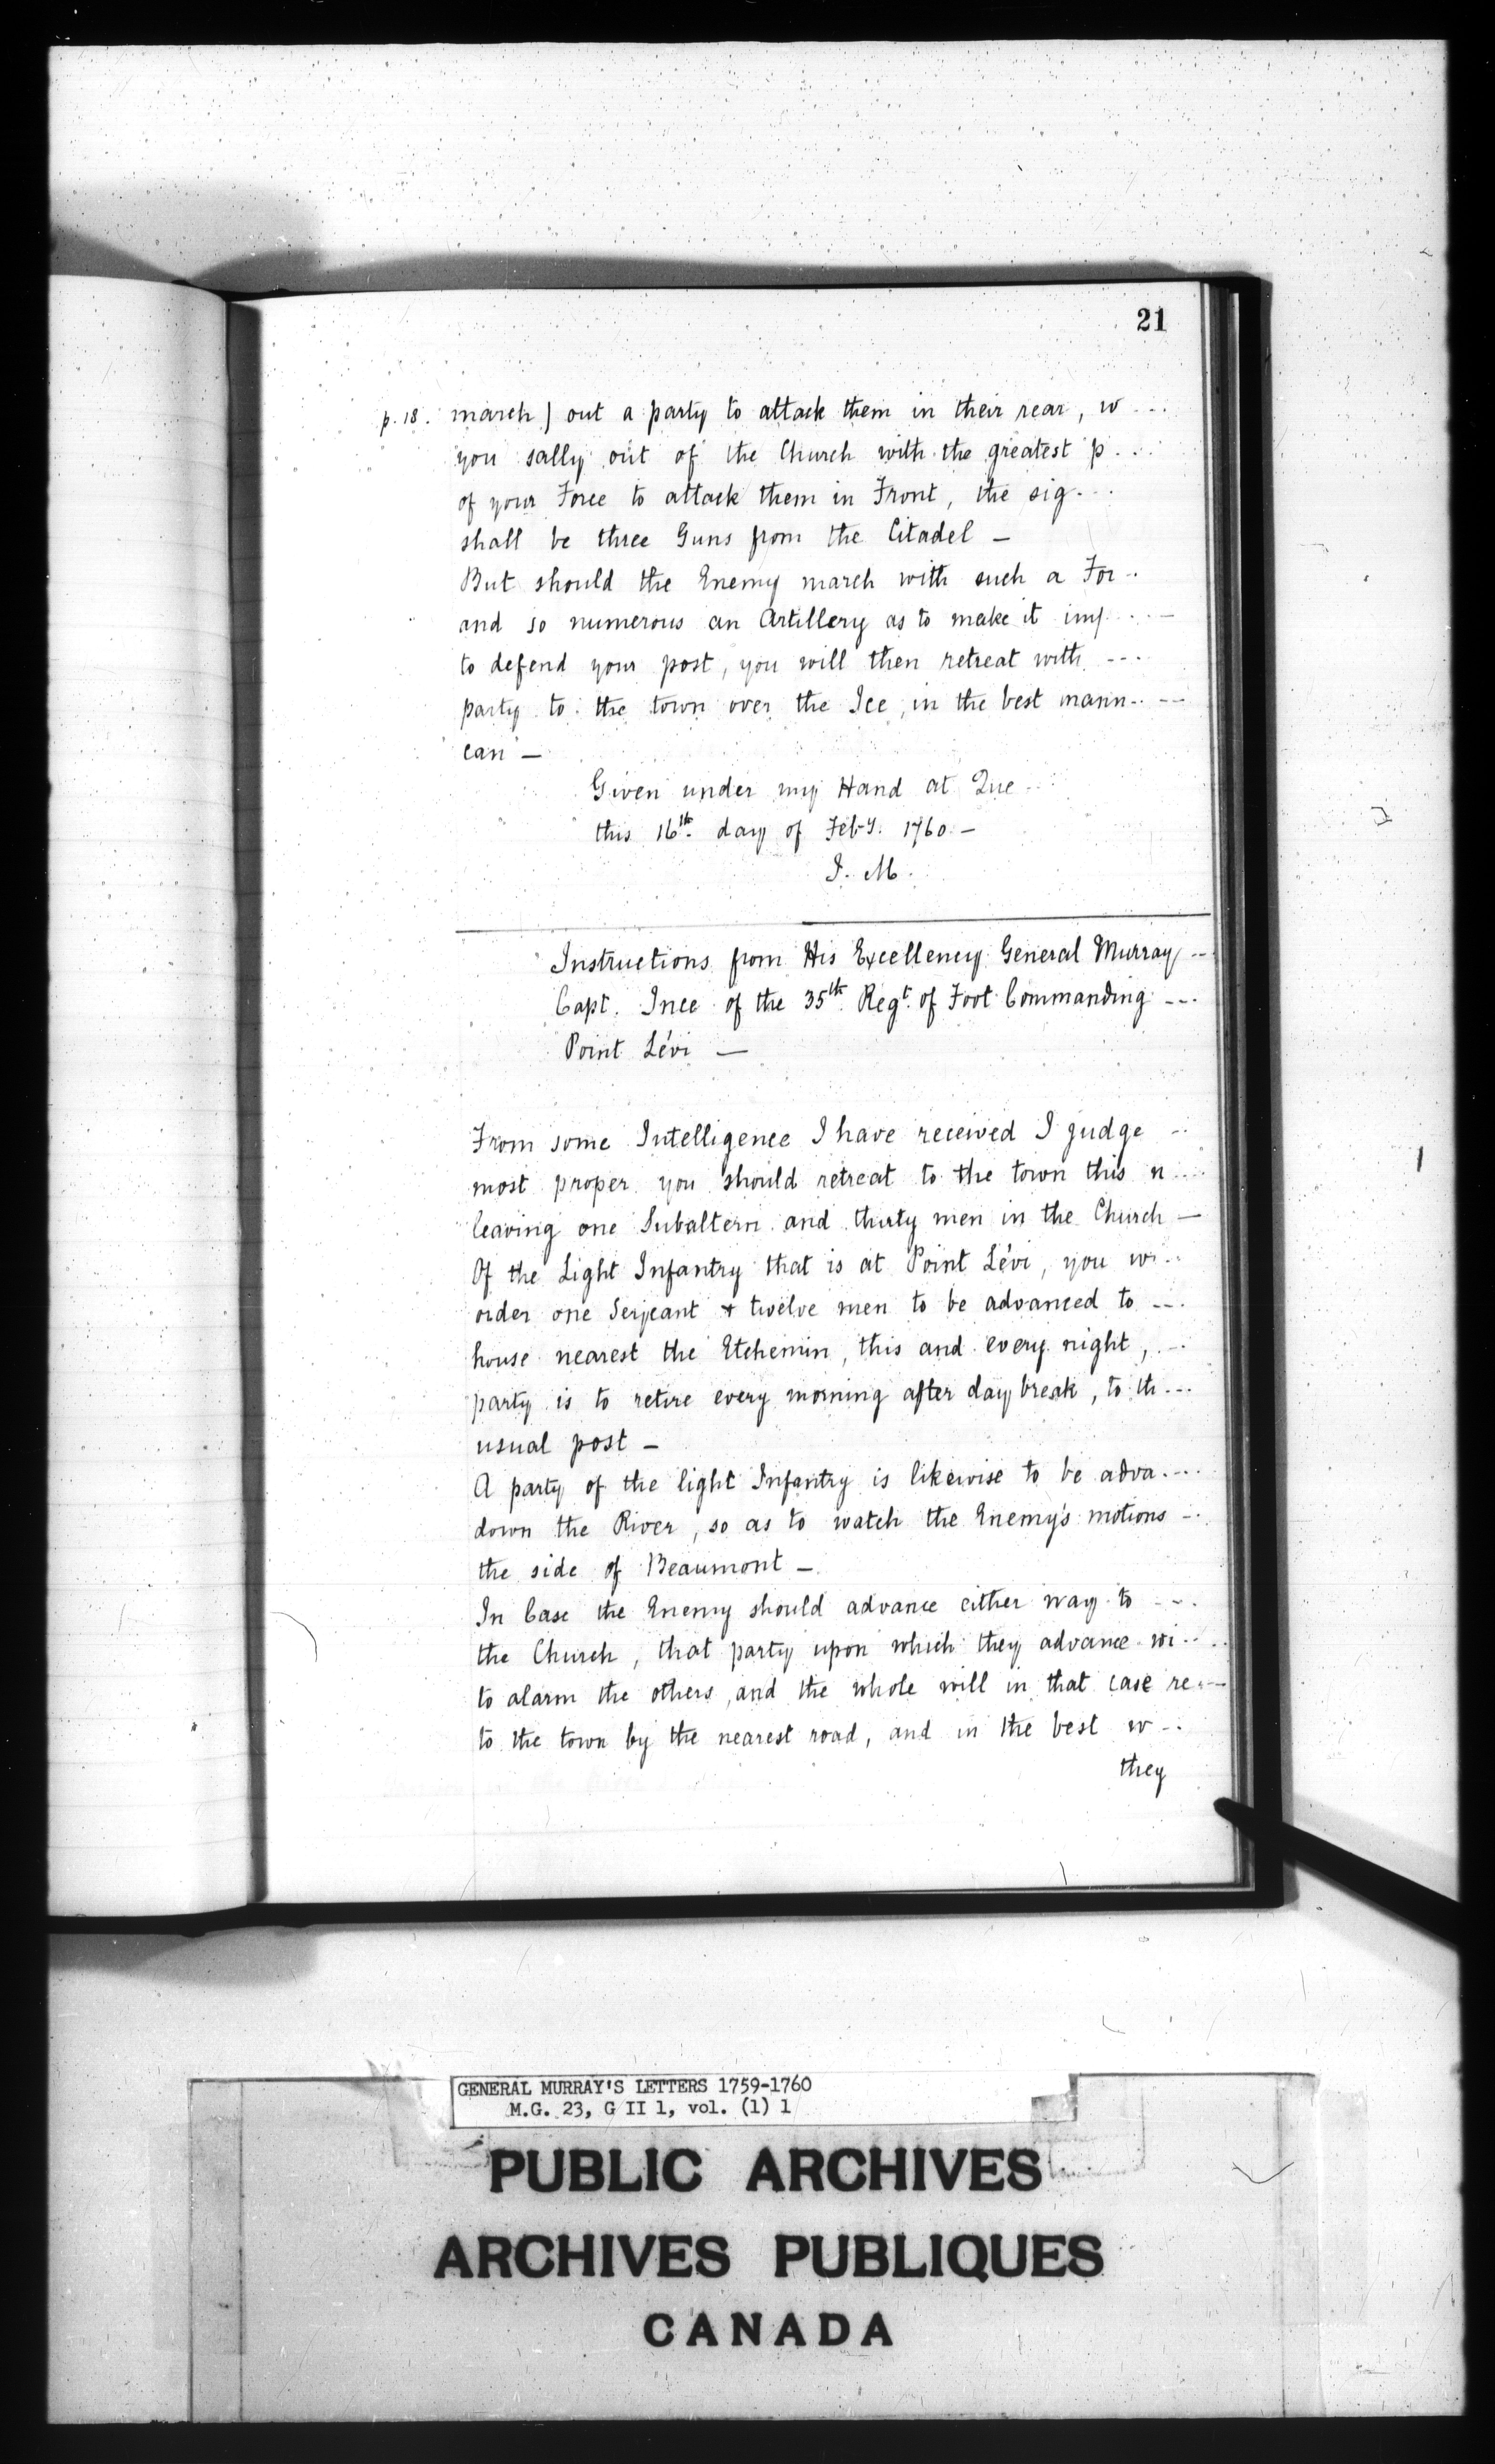 21
p. 18. march) out a party to attack them in their rear, w ...
you sally out of the Church with the greatest p...
of your Force to attack them in Front, the sig...
shall be three Guns from the Citadel —
But should the Enemy march with such a For..
and so numerous an Artillery as to make it imp....—
to defend your post, you will then retreat with ---
party to the town over the Ice, in the best mann.. --
can —
Given under my Hand at Que...
this 16th. day of Feby. 1760 —
J. M.
Instructions from His Excellency General Murray --
Capt. Ince of the 35th Regt. of Foot Commanding ---
Point Lévi —
From some Intelligence I have received I judge --
most proper you should retreat to the town this n....
leaving one Subaltern and thirty men in the Church —
Of the Light Infantry that is at Point Lévi, you wi..
order one Serjeant & twelve men to be advanced to ---
house nearest the Etchemin, this and every night, ---
party is to retire every morning after day break, to th...
usual post —
A party of the light Infantry is likewise to be adva....
down the River, so as to watch the Enemy's motions --
the side of Beaumont —
In Case the Enemy should advance either way to ---
the Church, that party upon which they advance wi....
to alarm the others, and the whole will in that case re..--
to the town by the nearest road, and in the best w --
they
GENERAL MURRAY'S LETTERS 1759-1760
M.G. 23, G II 1, vol. (1) 1
PUBLIC ARCHIVES
ARCHIVES PUBLIQUES
CANADA